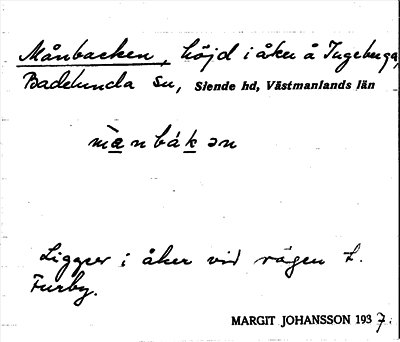 Månbacken, höjd i åker å Ingeberga,
Badelunda sn, Siende hd, Västmanlands län
mæ̀nbákən
Ligger i åker vid vägen t.
Furby.
MARGIT JOHANSSON 1937.